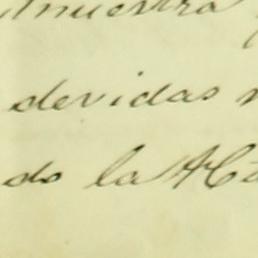 muestra
devidas
do la